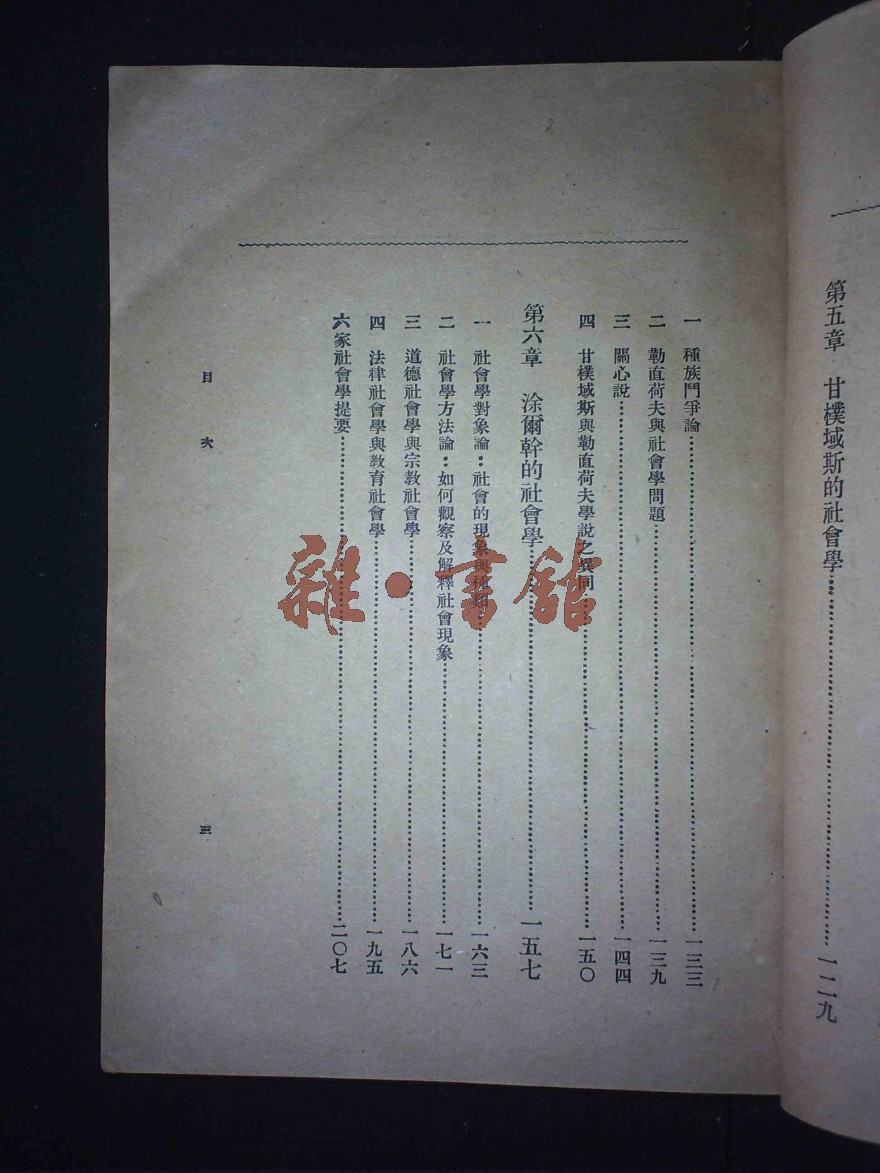 第五章　甘樸域斯的社會學……一二九
一　種族鬥爭論……一三三
二　勒直荷夫與社會學問題……一三九
三　關心說……一四四
四　甘樸域斯與勒直荷夫學說之異同……一五〇
第六章　涂爾幹的社會學……一五七
一　社會學對象論：社會的現象與種類……一六三
二　社會學方法論：如何觀察及解釋社會現象……一七一
三　道德社會學與宗教社會學……一八六
四　法律社會學與教育社會學……一九五
六家社會學提要……二〇七
目次
三
雜·書館